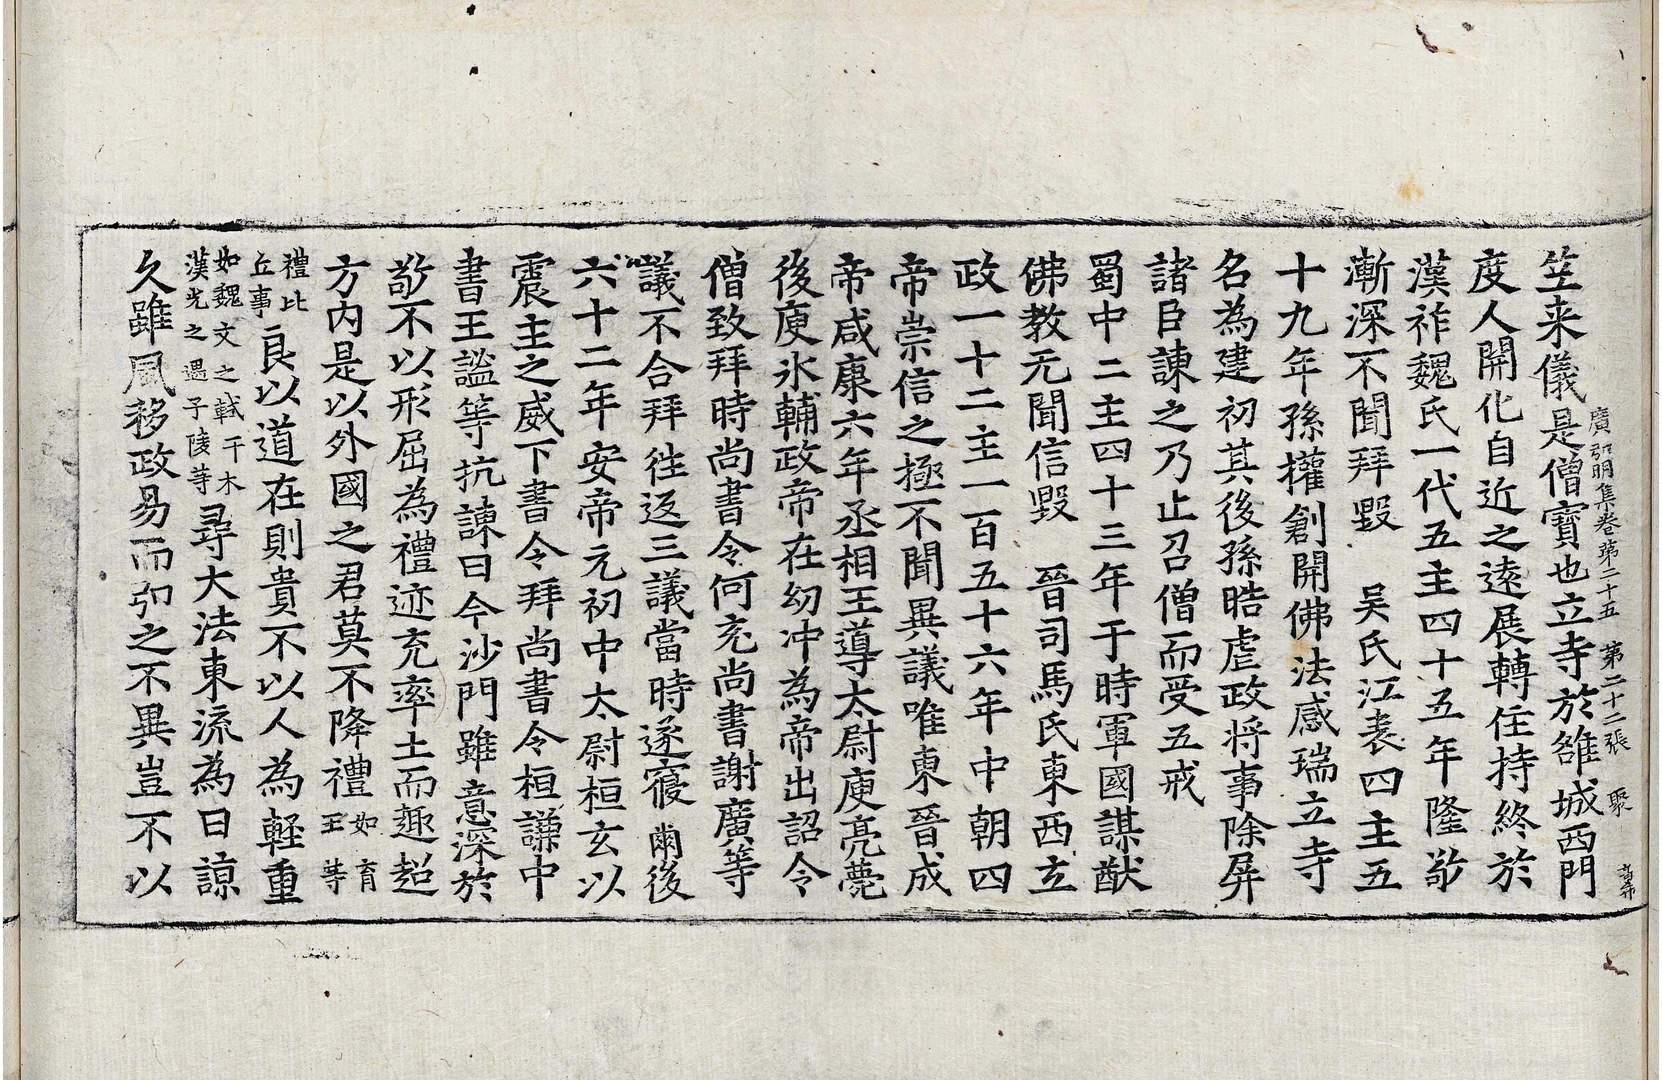 廣弘明集卷第二十五　第二十二張　聚
笁来儀是僧寶也立寺於雒城西門
度人開化自近之遠展轉住持終於
漢祚魏氏一代五主四十五年隆敬
漸深不聞拜毀　吳氏江表四主五
十九年孫權創開佛法感瑞立寺
名為建初其後孫晧虐政将事除屏
諸臣諫之乃止召僧而受五戒
蜀中二主四十三年于時軍國謀猷
佛教无聞信毀　晉司馬氏東西立
政一十二主一百五十六年中朝四
帝崇信之極不聞異議唯東晉成
帝咸康六年丞相王導太尉庾亮薨
後庾氷輔政帝在幼冲為帝出詔令
僧致拜時尚書令何充尚書謝廣等
議不合拜徃返三議當時遂寢爾後
六十二年安帝元初中太尉桓玄以
震主之威下書令拜尚書令桓謙中
書王謐等抗諫曰今沙門雖意深於
敬不以形屈為禮迹充率土而趣超
方内是以外國之君莫不降禮如育王等
禮比丘事良以道在則貴不以人為輕重
如魏文之軾干木漢光之遇子陵等尋大法東流為日諒
久雖風移政易而弘之不異豈不以